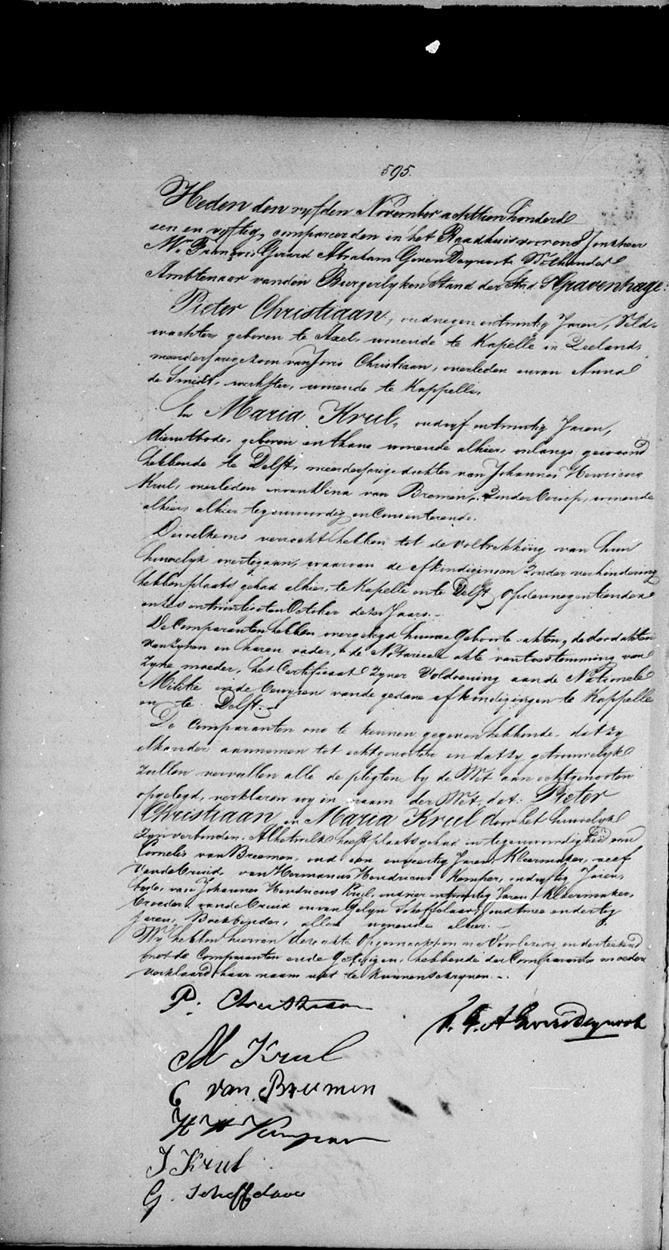 595.
Heden den vyfden November achttien honderd
een en vyftig, compareerden in het Raadhuis voor ons Jonkheer
Mr. François Gerard Abraham Gevers Deynoot, Wethouder
Ambtenaar van den Burgerlyken Stand der Stad 'sGravenhage:
Pieter Christiaan, oud negen en twintig Jaren, Veld-
wachter geboren te Axel, wonende te Kapelle in Zeeland
meerderjarige zoon van Joris Christiaan, overleden en van Anna
de Smidt, werkster, wonende te Kappelle,
En Maria Krul, oud vyf en twintig Jaren,
dienstbode, geboren en thans wonende alhier, onlangs gewoond
hebbende te Delft, meerderjarige dochter van Johannes Henricus
Krul, overleden en van Dina van Bremen, zonder beroep, wonende
alhier, alhier tegenwoordig en consenterende.
Dewelke ons verzocht hebben tot de voltrekking van hun
huwelyk overtegaan, waarvan de afkondigingen zonder verhindering
hebben plaats gehad alhier, te Kapelle en te Delft, op den negentienden
en zes en twintigsten October dezes Jaars.
De Comparanten hebben overgelegd hunne Geboorte-akten, de doodakten
van zynen en haren vader, de Notariele akte van toestemming van
zyne moeder, het Certificaat zyner Voldoening aan de Nationale
Militie en de bewyzen van de gedane afkondigingen te Kappelle
en te Delft.
De Comparanten ons te kennen gegeven hebbende, dat zy
elkander aannemen tot echtgenooten en dat zy getrouwelyk
zullen vervullen alle de pligten by de Wet aan echtgenooten
opgelegd, verklaren wy in naam der Wet, dat Pieter
Christiaan en Maria Krul door het huwelyk
zyn verbonden. Al hetwelk heeft plaats gehad in tegenwoordigheid van
Cornelis van Breemen, oud een en veertig Jaren, Kleermaker, neef
van de bruid, van Hermanus Hendricus Kemper, oud vyftig Jaren,
bode, van Johannes Hendricus Krul, oud vier en twintig Jaren, Kleermaker,
broeder van de bruid en van Gelyn Scheffelaar, oud twee en dertig
Jaren, Boekbinder, allen wonende alhier.
Wy hebben hiervan deze akte opgemaakt en na voorlezing, onderteekend
met de Comparanten en de getuigen, hebbende der Comparante moeder
verklaard haar naam niet te kunnen schryven.
P. Christiaan
F. G. A Gevers Deynoot
M Krul
C van Breemen
H H Kemper
J Krul
G. Scheffelaar